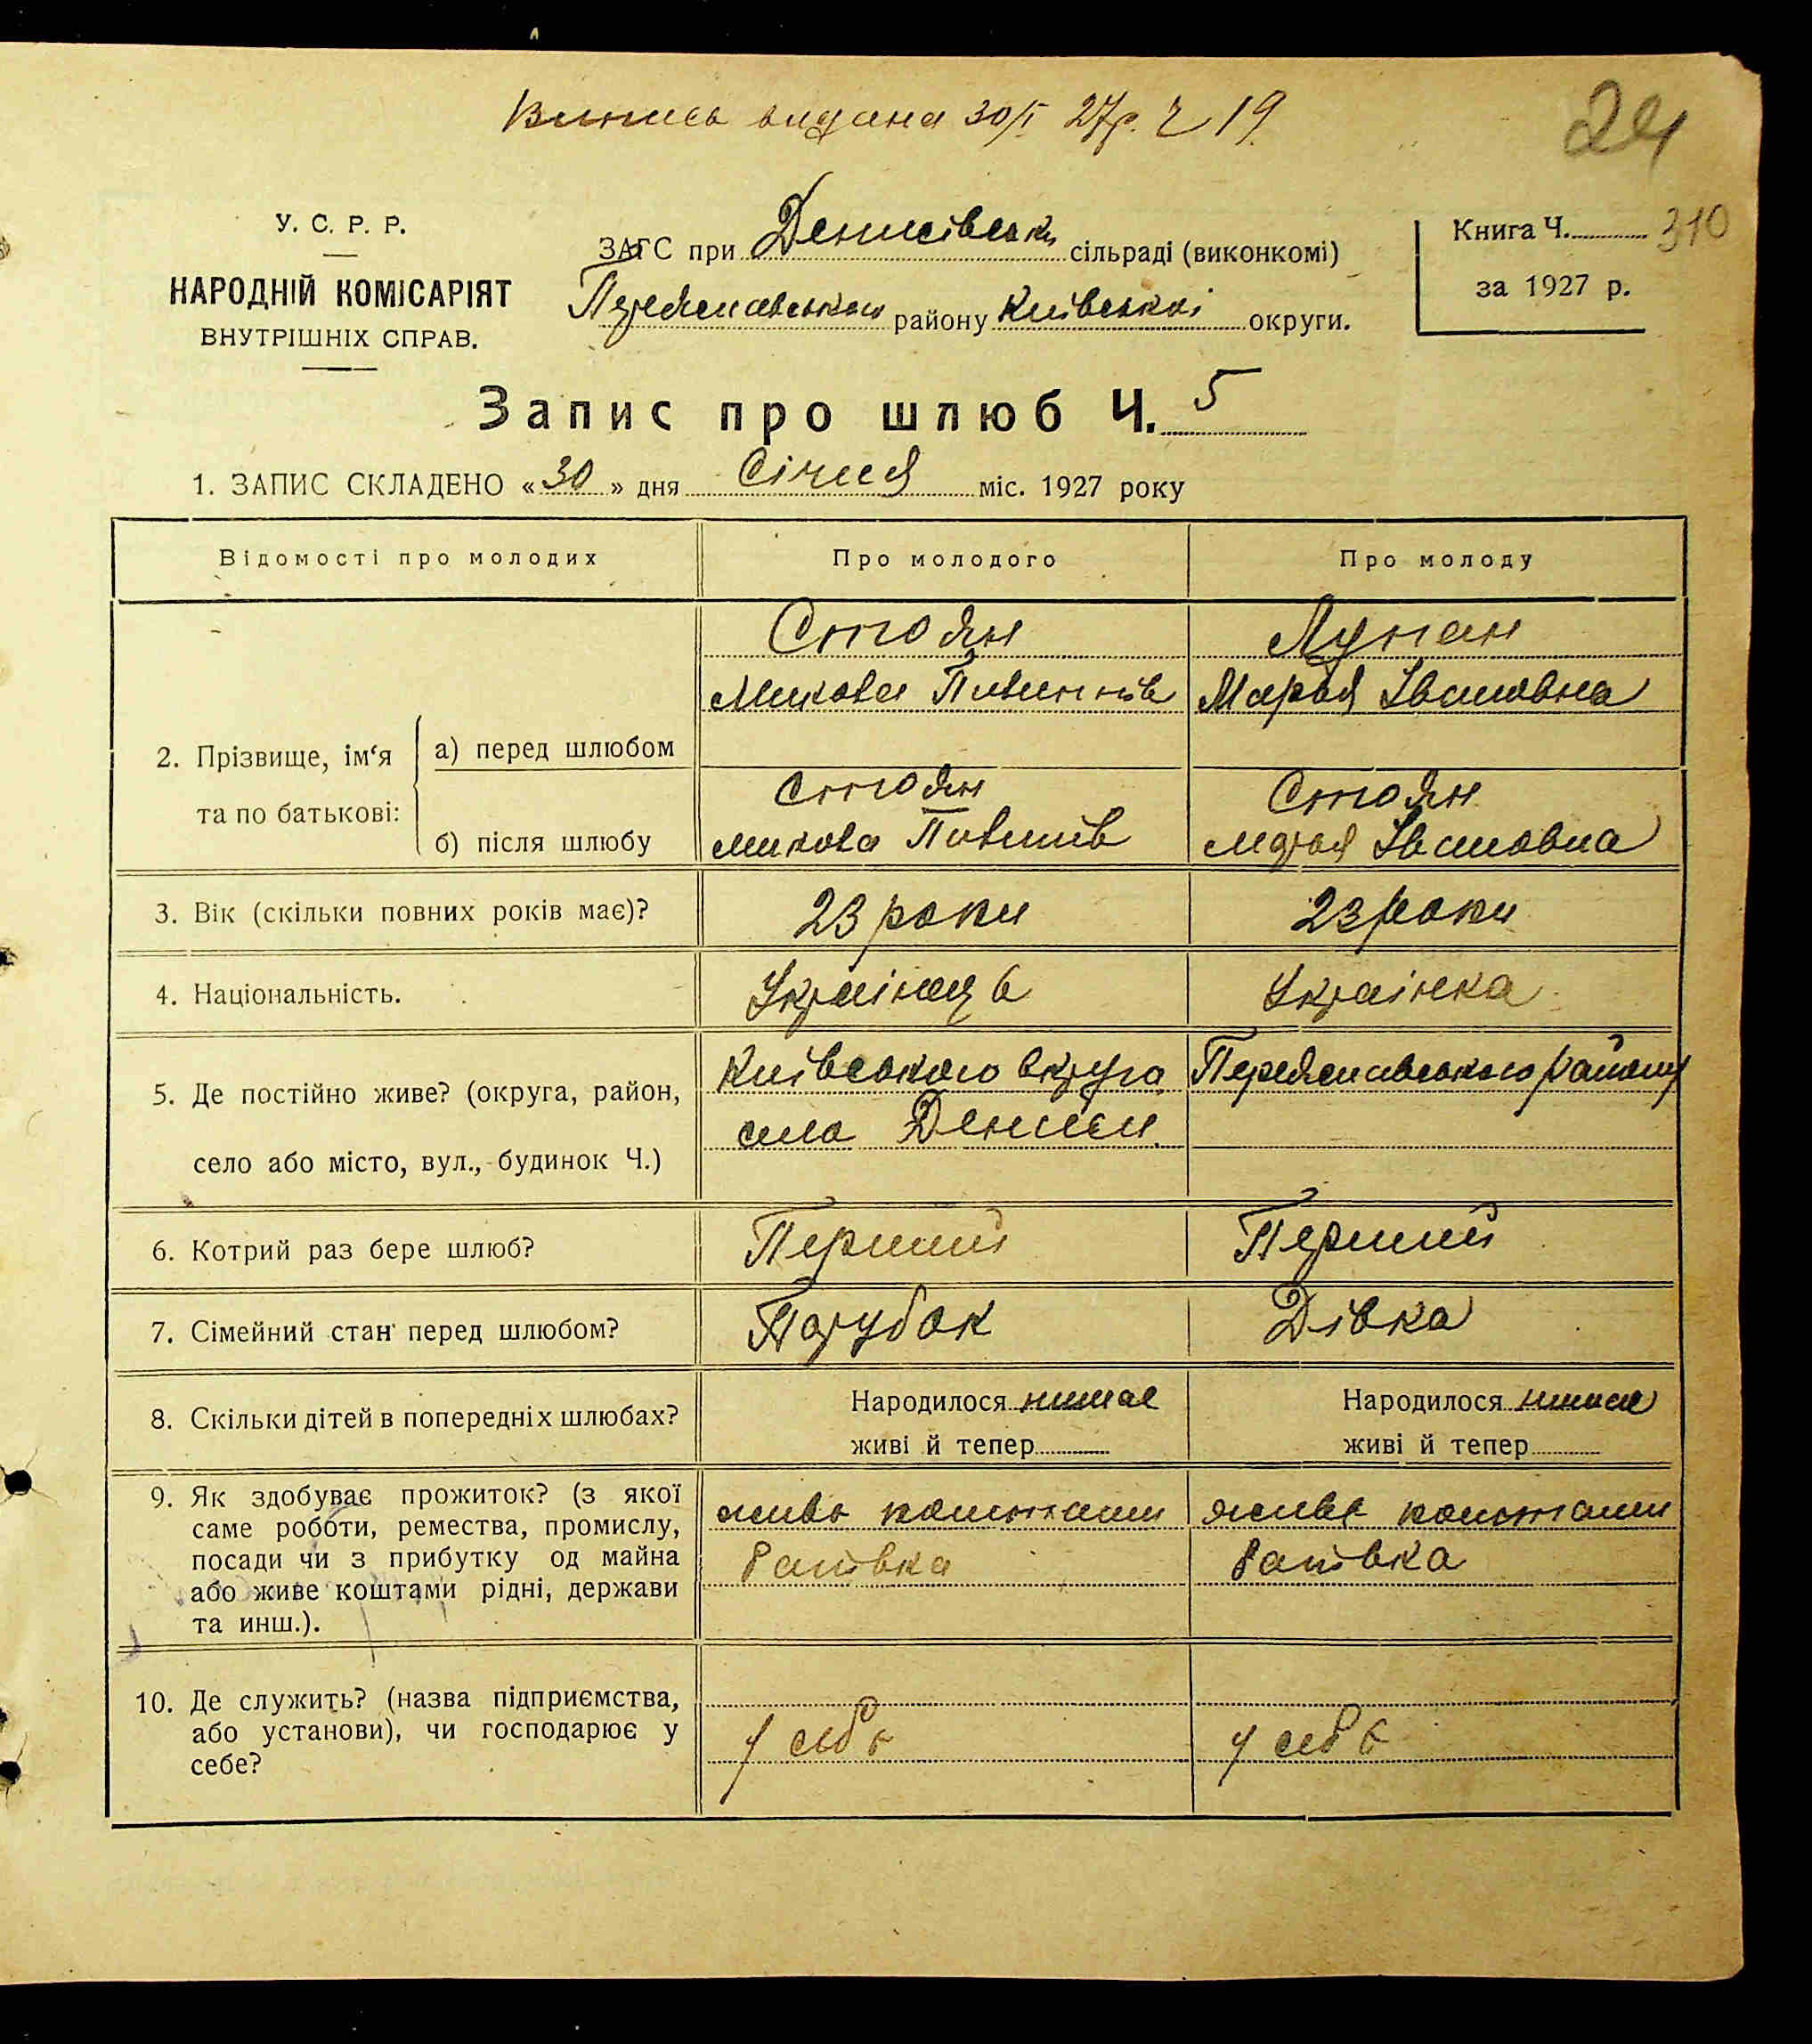 Випись видана 30/I 27р. Ч 19.
24
У. С. Р. Р.
НАРОДНІЙ КОМІСАРІЯТ
ВНУТРІШНІХ СПРАВ.
ЗАГС при Денисівськ сільраді (виконкомі)
Переяславського району Київської округи.
Книга Ч. 310
за 1927 р.
Запис про шлюб Ч. 5
1. ЗАПИС СКЛАДЕНО «30» дня Січня міс. 1927 року
Відомості про молодих
Про молодого
Про молоду
2. Прізвище, ім‘я та по батькові:
а) перед шлюбом
Стоян
Микола
Лупан
Марья Івановна
б) після шлюбу
Стоян
Микола
Стоян
Марья Івановна
3. Вік (скільки повних років має)?
23 роки
23 роки
4. Національність.
Українець
Українка
5. Де постійно живе? (округа, район,
село або місто, вул., будинок Ч.)
Київського округа
села Дениси
Переяславського району
6. Котрий раз бере шлюб?
Перший
Перший
7. Сімейний стан перед шлюбом?
Парубок
Дівка
8. Скільки дітей в попередніх шлюбах?
Народилося нимає
живі й тепер
Народилося нимає
живі й тепер
9. Як здобуває прожиток? (з якої
саме роботи, ремества, промислу,
посади чи з прибутку од майна
або живе коштами рідні, держави
та инш.).
живе коштами
батька
живе коштами
батька
10. Де служить? (назва підприємства,
або установи), чи господарює у
себе?
у себе
у себе